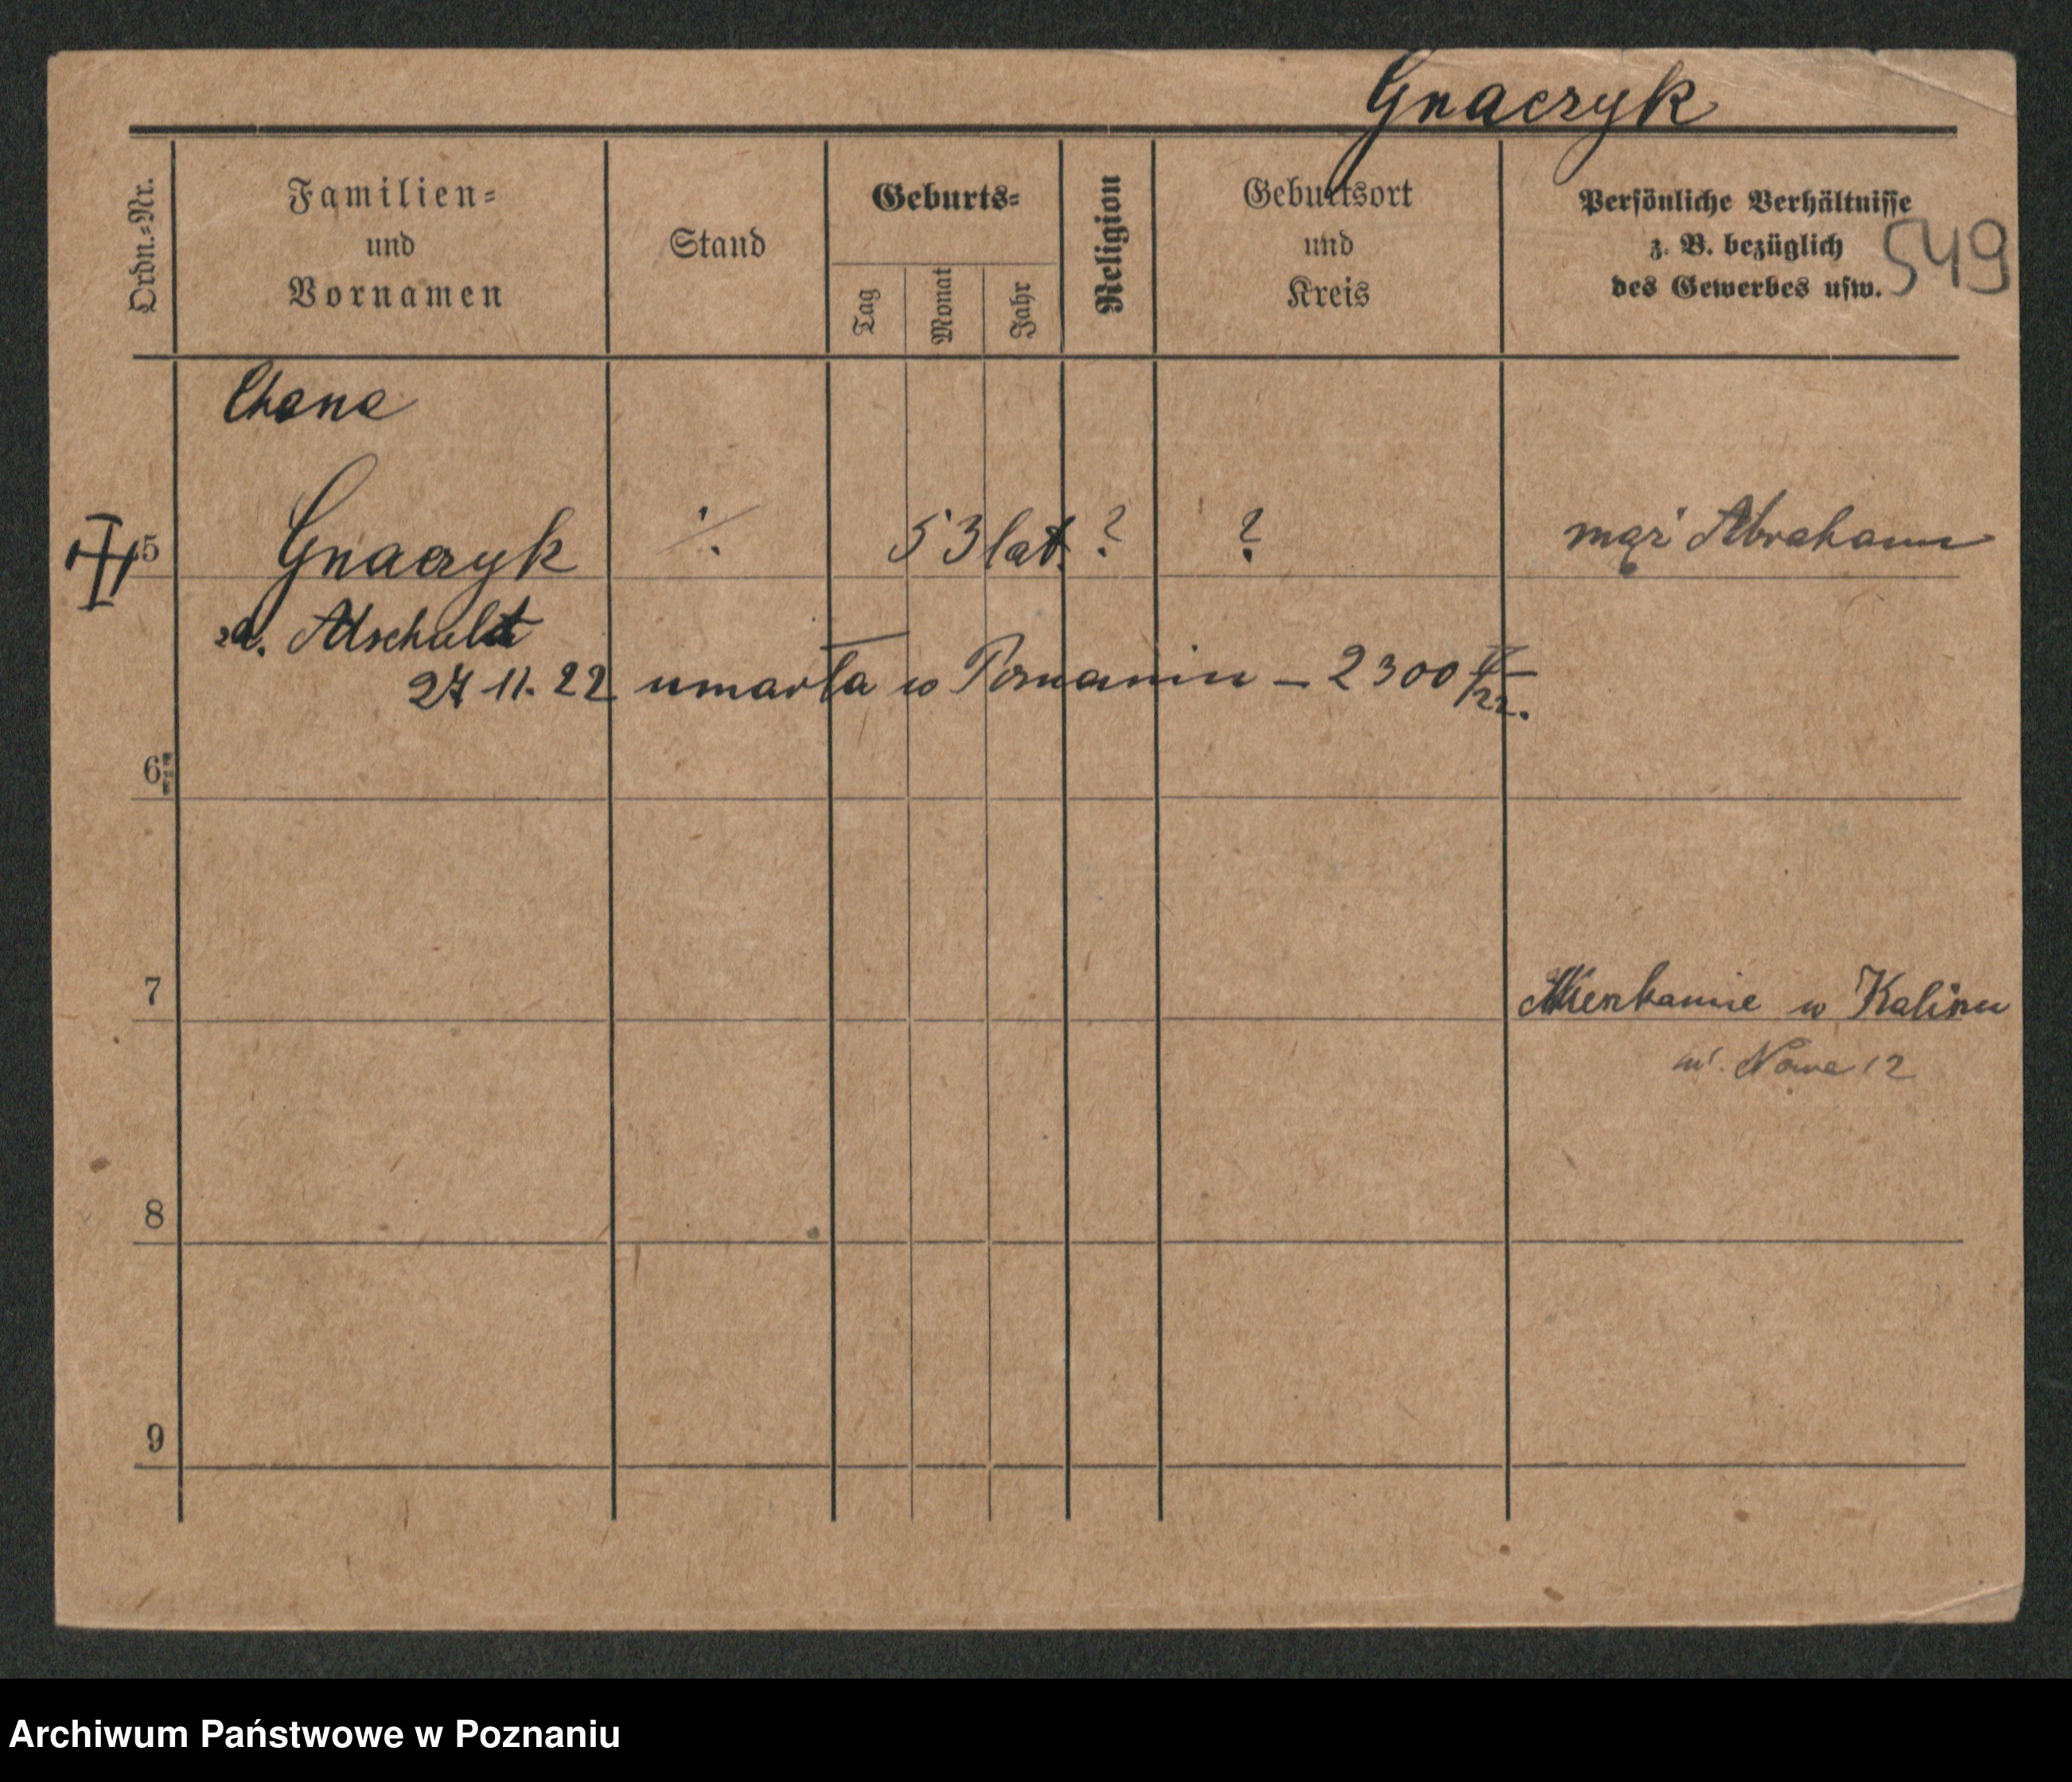 Gnaczyk
Ordn.-Nr.
Familien-
und
Vornamen
Stand
Geburts-
Tag
Monat
Jahr
Religion
Geburtsort
und
Kreis
Persönliche Verhältnisse
z. B. bezüglich
des Gewerbes usw.
549
Chana
5
Gnaczyk
·/.
53 lat.
?
?
mąż Abraham
27 11. 22 umarła w Poznaniu – 2300
6
7
Mieszkanie w Kaliszu
ul. Nowa 12
8
9
Archiwum Państwowe w Poznaniu